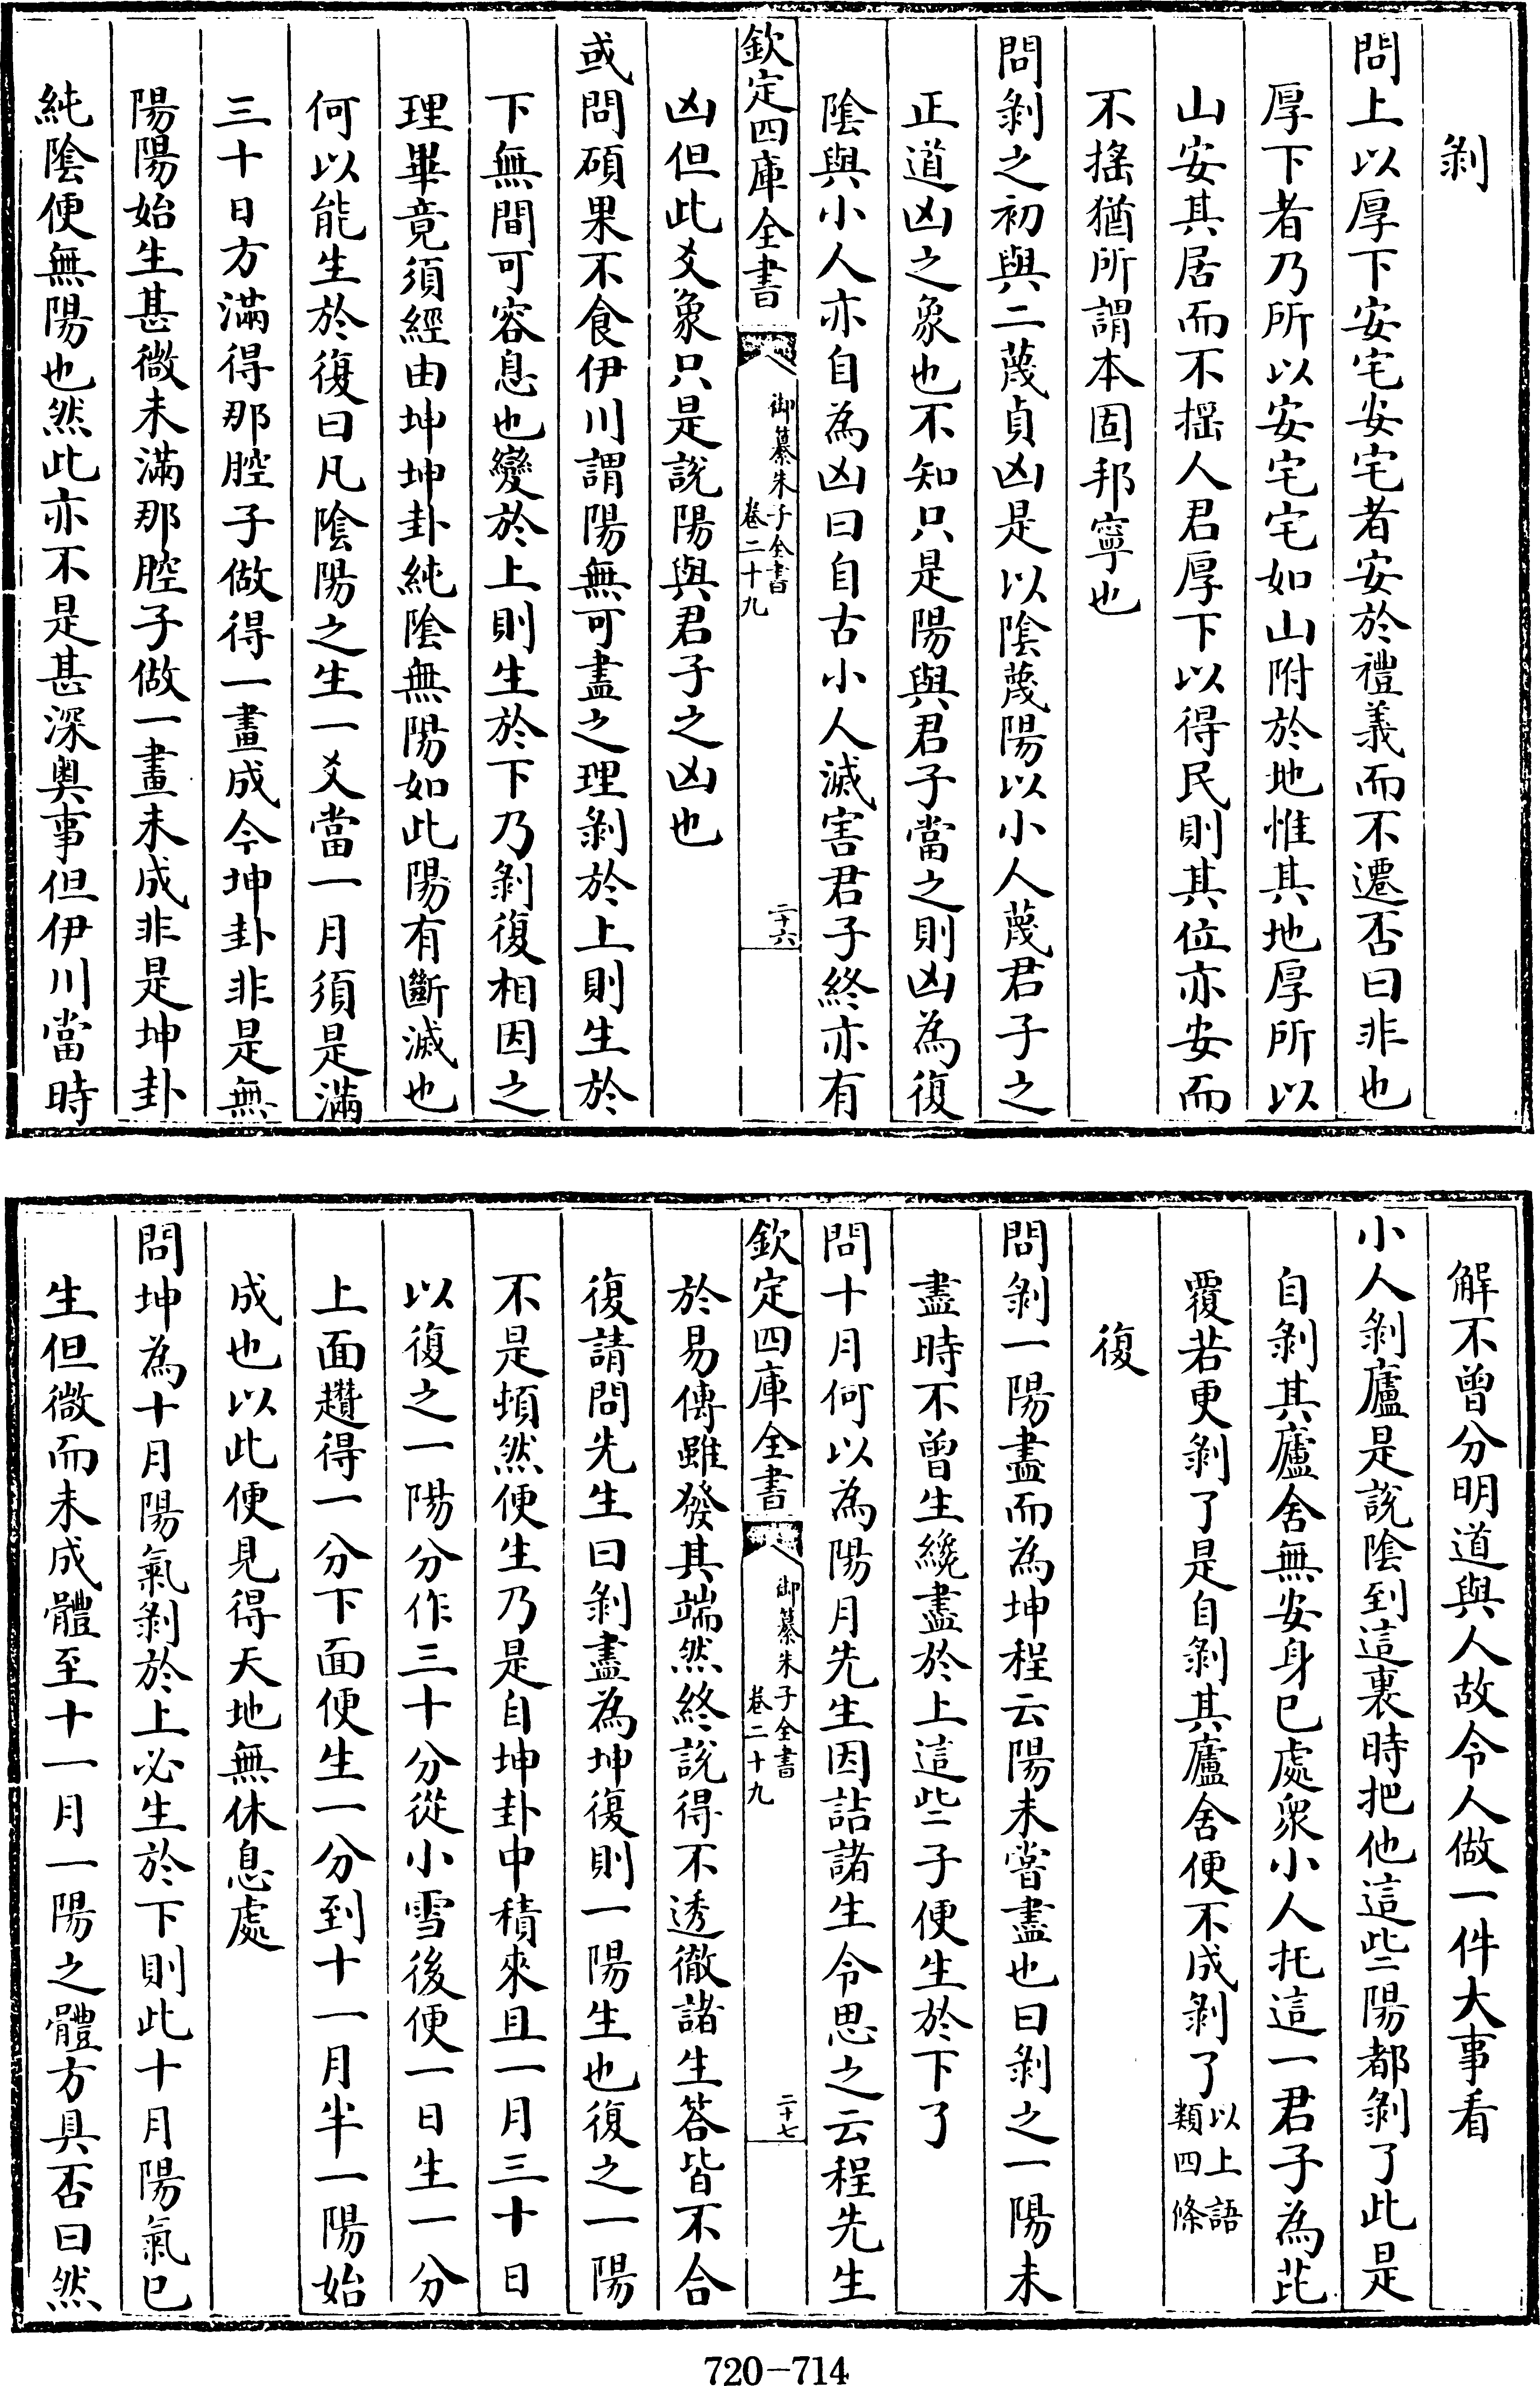 剝
問上以厚下安宅安宅者安於禮義而不遷否曰非也
厚下者乃所以安宅宅如山附於地惟其地厚所以
山安其居而不搖人君厚下以得民則其位亦安而
不搖猶所謂本固邦寧也
問剝之初與二蔑貞凶是以陰蔑陽以小人蔑君子之
正道凶之象也不知只是陽與君子當之則凶為復
陰與小人亦自為凶曰自古小人滅害君子終亦有
欽定四庫全書
御纂朱子全書
卷二十九
二十六
凶但此爻象只是說陽與君子之凶也
或問碩果不食伊川謂陽無可盡之理剝於上則生於
下無間可容息也變於上則生於下乃剝復相因之
理畢竟須經由坤坤卦純陰無陽如此陽有斷滅也
何以能生於復曰凡陰陽之生一爻當一月須是滿
三十日方滿得那腔子做得一畫成今坤卦非是無
陽陽始生甚微未滿那腔子做一畫未成非是坤卦
純陰便無陽也然此亦不是甚深奧事但伊川當時
解不曾分明道與人故令人做一件大事看
小人剝廬是說陰到這裏時把他這些陽都剝了此是
自剝其廬舍無安身已處衆小人托這一君子為芘
覆若更剝了是自剝其廬舍便不成剝了以上語類四條
復
問剝一陽盡而為坤程云陽未嘗盡也曰剝之一陽未
盡時不曾生纔盡於上這些子便生於下了
問十月何以為陽月先生因詰諸生令思之云程先生
欽定四庫全書
御纂朱子全書
卷二十九
二十七
於易傳雖發其端然終說得不透徹諸生答皆不合
復請問先生曰剝盡為坤復則一陽生也復之一陽
不是頓然便生乃是自坤卦中積來且一月三十日
以復之一陽分作三十分從小雪後便一日生一分
上面趲得一分下面便生一分到十一月半一陽始
成也以此便見得天地無休息處
問坤為十月陽氣剝於上必生於下則此十月陽氣已
生但微而未成體至十一月一陽之體方具否曰然
720-714